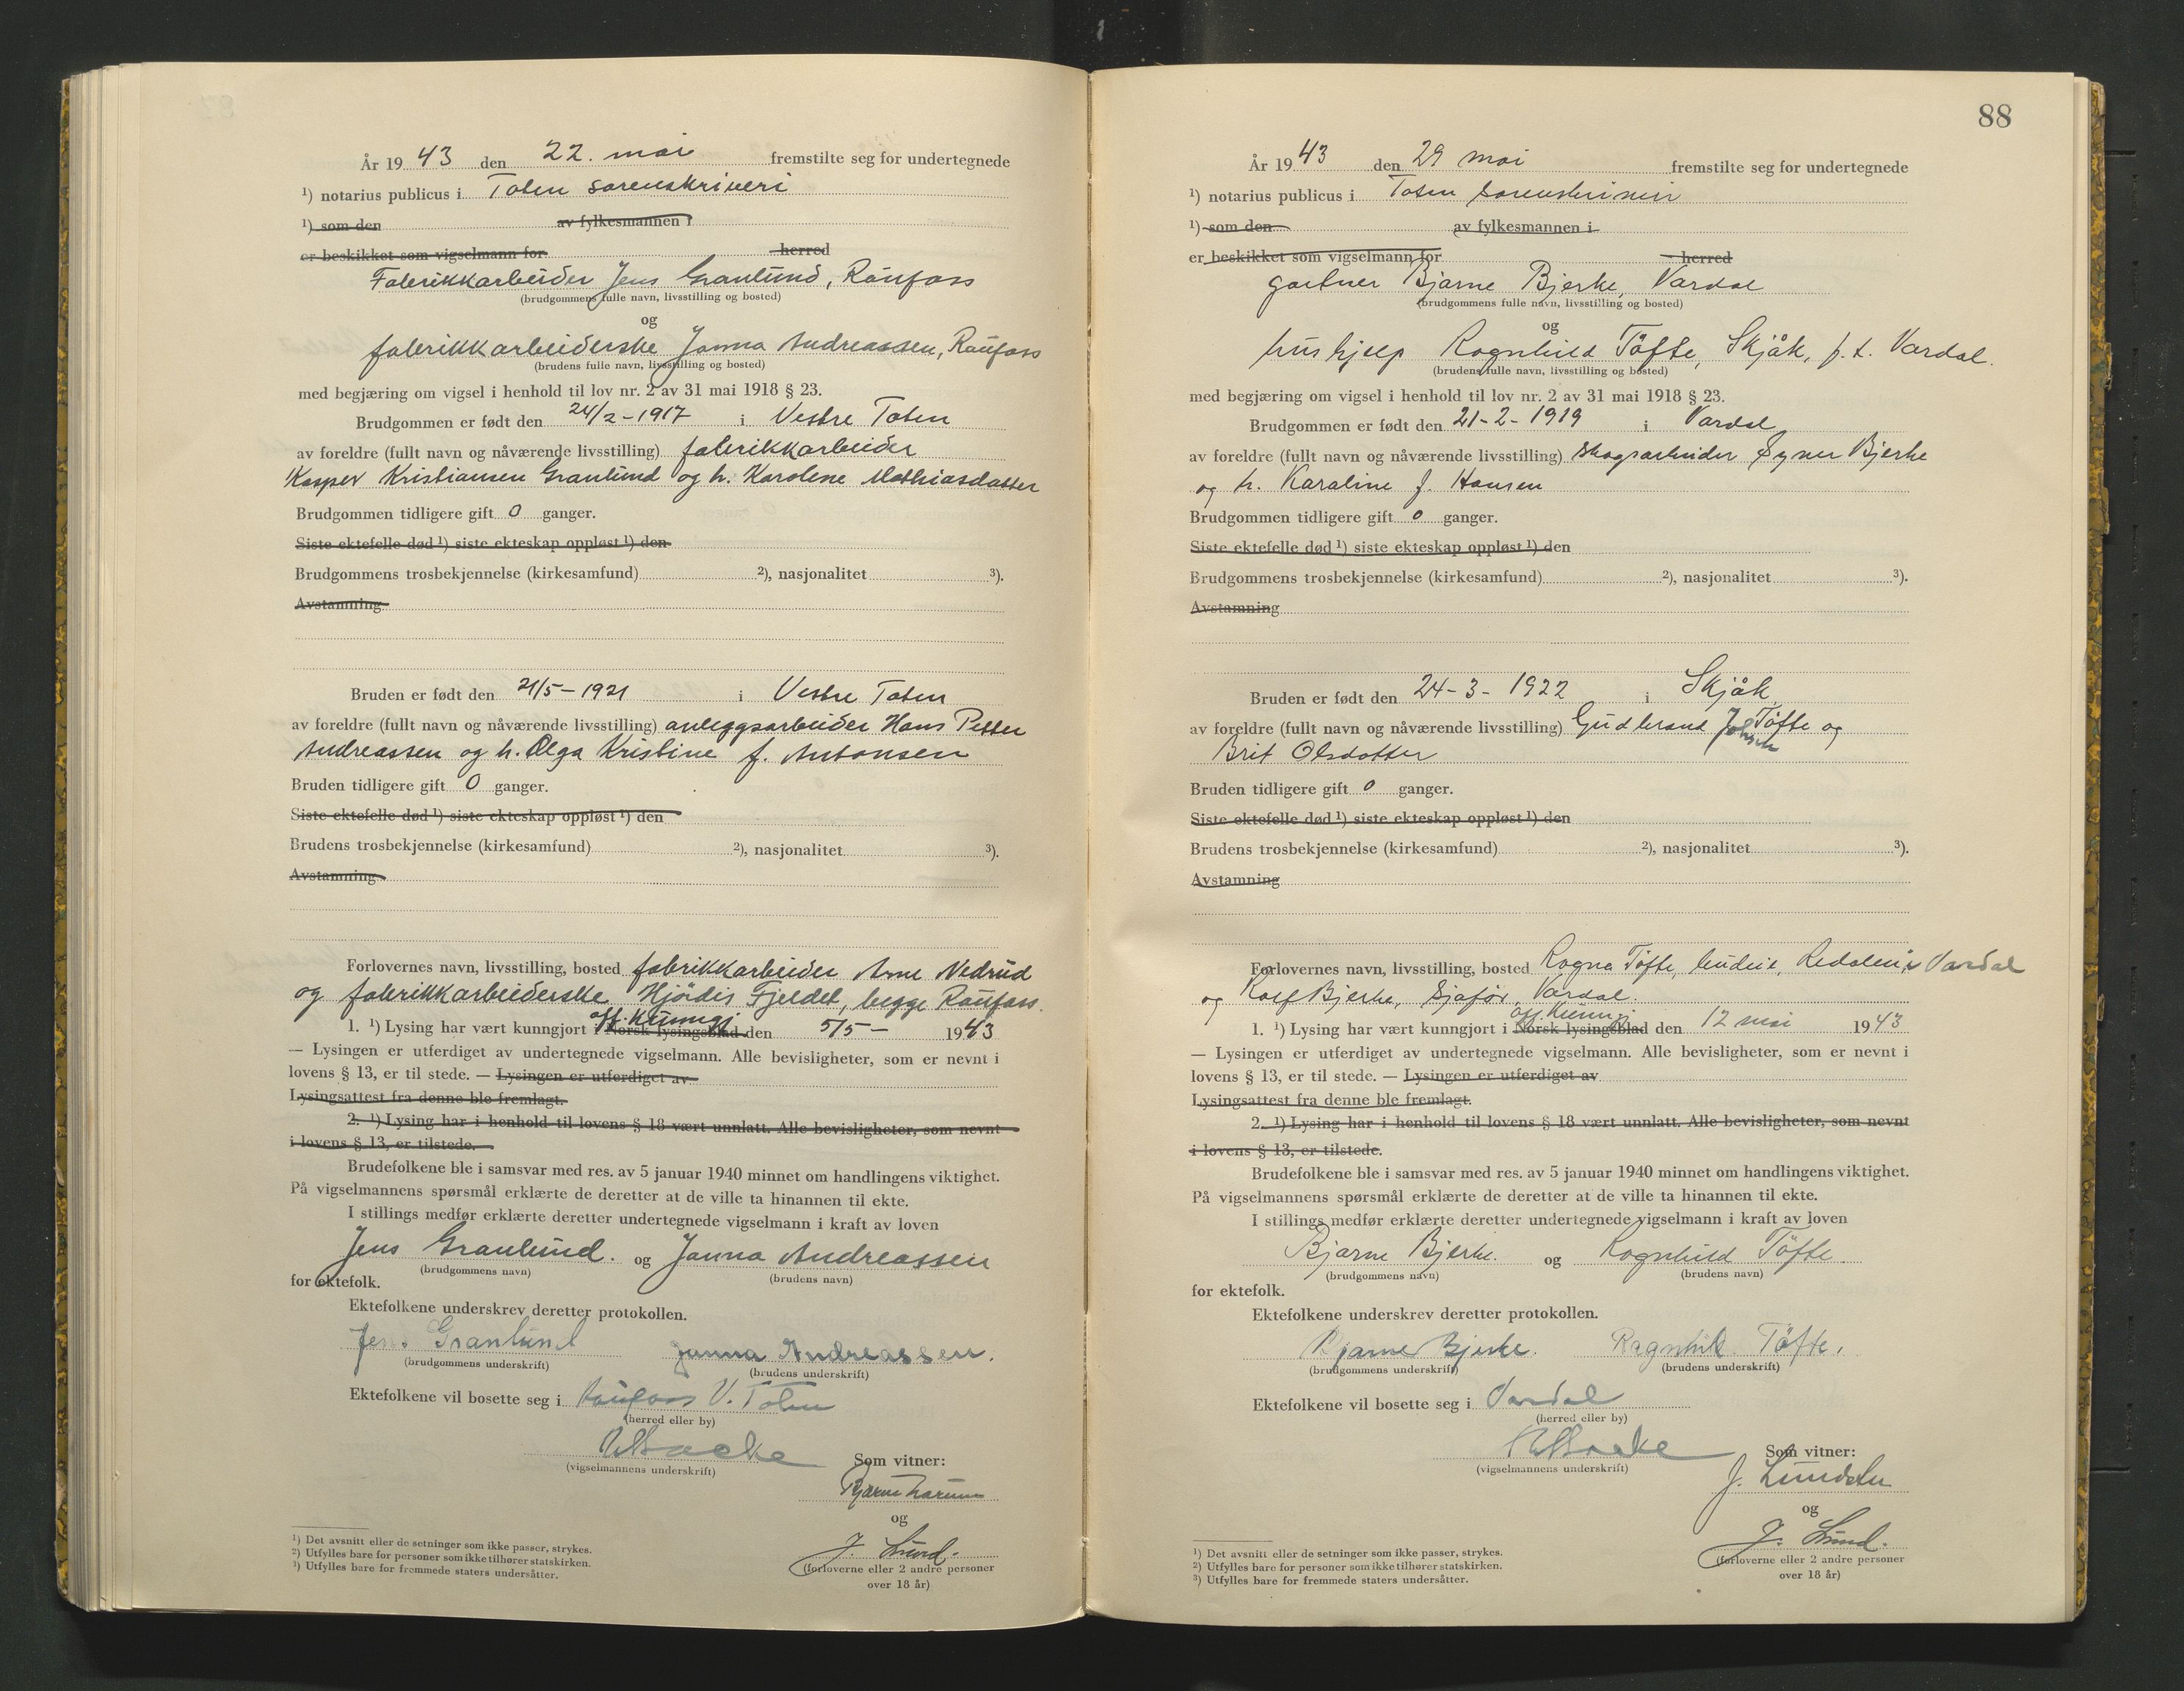 År 19 43 den 22. mai fremstilte seg for undertegnede
¹) notarius publicus i Toten sorenskriveri
¹) som den av fylkesmannen i
er beskikket som vigselmann for herred
Fabrikkarbeider Jens Granlund, Raufoss
(brudgommens fulle navn, livsstilling og bosted)
og
fabrikkarbeiderske Janna Andreassen, Raufoss
(brudens fulle navn, livsstilling og bosted)
med begjæring om vigsel i henhold til lov nr. 2 av 31 mai 1918 § 23.
Brudgommen er født den 24/2-1917 i Vestre Toten
av foreldre (fullt navn og nåværende livsstilling) fabrikkarbeider
Kasper Kristiansen Granlund og h. Karolene Mathiasdatter
Brudgommen tidligere gift 0 ganger.
Siste ektefelle død ¹) siste ekteskap oppløst ¹) den
Brudgommens trosbekjennelse (kirkesamfund) ²), nasjonalitet ³).
Avstamning
Bruden er født den 21/5-1921 i Vestre Toten
av foreldre (fullt navn og nåværende livsstilling) anleggsarbeider Hans Petter
Andreassen og h. Olga Kristine f. Antonsen
Bruden tidligere gift 0 ganger.
Siste ektefelle død ¹) siste ekteskap oppløst ¹) den
Brudens trosbekjennelse (kirkesamfund) ²), nasjonalitet ³).
Avstamning
Forlovernes navn, livsstilling, bosted fabrikkarbeider Arne Nedrud
og fabrikkarbeiderske Hjördis Fjeldet, begge Raufoss.
off. kunngj
1. ¹) Lysing har vært kunngjort i Norsk lysingsblad den 5/5- 1943
— Lysingen er utferdiget av undertegnede vigselmann. Alle bevisligheter, som er nevnt i
lovens § 13, er til stede. — Lysingen er utferdiget av
Lysingsattest fra denne ble fremlagt.
2. ¹) Lysing har i henhold til lovens § 18 vært unnlatt. Alle bevisligheter, som nevnt
i lovens § 13, er tilstede.
Brudefolkene ble i samsvar med res. av 5 januar 1940 minnet om handlingens viktighet.
På vigselmannens spørsmål erklærte de deretter at de ville ta hinannen til ekte.
I stillings medfør erklærte deretter undertegnede vigselmann i kraft av loven
Jens Granlund. og Janna Andreassen
(brudgommens navn) (brudens navn)
for ektefolk.
Ektefolkene underskrev deretter protokollen.
Jens Granlund Janna Andreassen.
(brudgommens underskrift) (brudens underskrift)
Ektefolkene vil bosette seg i Raufoss V. Toten
(herred eller by)
(vigselmannens underskrift) Som vitner:
Bjarne
og
J. Lund.
(forloverne eller 2 andre personer
over 18 år)
¹) Det avsnitt eller de setninger som ikke passer, strykes.
²) Utfylles bare for personer som ikke tilhører statskirken.
³) Utfylles bare for fremmede staters undersåtter.
88
År 19 43 den 29 mai fremstilte seg for undertegnede
¹) notarius publicus i Toten sorenskriveri
¹) som den av fylkesmannen i
er beskikket som vigselmann for herred
gartner Bjarne Bjerke, Vardal
(brudgommens fulle navn, livsstilling og bosted)
og
hushjelp Ragnhild Töfte, Skjåk, p.t. Vardal.
(brudens fulle navn, livsstilling og bosted)
med begjæring om vigsel i henhold til lov nr. 2 av 31 mai 1918 § 23.
Brudgommen er født den 21-2-1919 i Vardal
av foreldre (fullt navn og nåværende livsstilling) skogsarbeider Syver Bjerke
og h. Karaline f. Hansen
Brudgommen tidligere gift 0 ganger.
Siste ektefelle død ¹) siste ekteskap oppløst ¹) den
Brudgommens trosbekjennelse (kirkesamfund) ²), nasjonalitet ³).
Avstamning
Bruden er født den 24-3-1922 i Skjåk
av foreldre (fullt navn og nåværende livsstilling) Gudbrand Töfte og
Brit Olsdatter
Bruden tidligere gift 0 ganger.
Siste ektefelle død ¹) siste ekteskap oppløst ¹) den
Brudens trosbekjennelse (kirkesamfund) ²), nasjonalitet ³).
Avstamning
Forlovernes navn, livsstilling, bosted Ragna Töfte, budeie, Redalen i Vardal
og Rolf Bjerke, sjaför, Vardal.
off. kunngj
1. ¹) Lysing har vært kunngjort i Norsk lysingsblad den 12 mai 1943
— Lysingen er utferdiget av undertegnede vigselmann. Alle bevisligheter, som er nevnt i
lovens § 13, er til stede. — Lysingen er utferdiget av
Lysingsattest fra denne ble fremlagt.
2. ¹) Lysing har i henhold til lovens § 18 vært unnlatt. Alle bevisligheter, som nevnt
i lovens § 13, er tilstede.
Brudefolkene ble i samsvar med res. av 5 januar 1940 minnet om handlingens viktighet.
På vigselmannens spørsmål erklærte de deretter at de ville ta hinannen til ekte.
I stillings medfør erklærte deretter undertegnede vigselmann i kraft av loven
Bjarne Bjerke. og Ragnhild Töfte.
(brudgommens navn) (brudens navn)
for ektefolk.
Ektefolkene underskrev deretter protokollen.
Bjarne Bjerke. Ragnhild Töfte.
(brudgommens underskrift) (brudens underskrift)
Ektefolkene vil bosette seg i Vardal
(herred eller by)
(vigselmannens underskrift) Som vitner:
J.
og
J. Lund.
(forloverne eller 2 andre personer
over 18 år)
¹) Det avsnitt eller de setninger som ikke passer, strykes.
²) Utfylles bare for personer som ikke tilhører statskirken.
³) Utfylles bare for fremmede staters undersåtter.